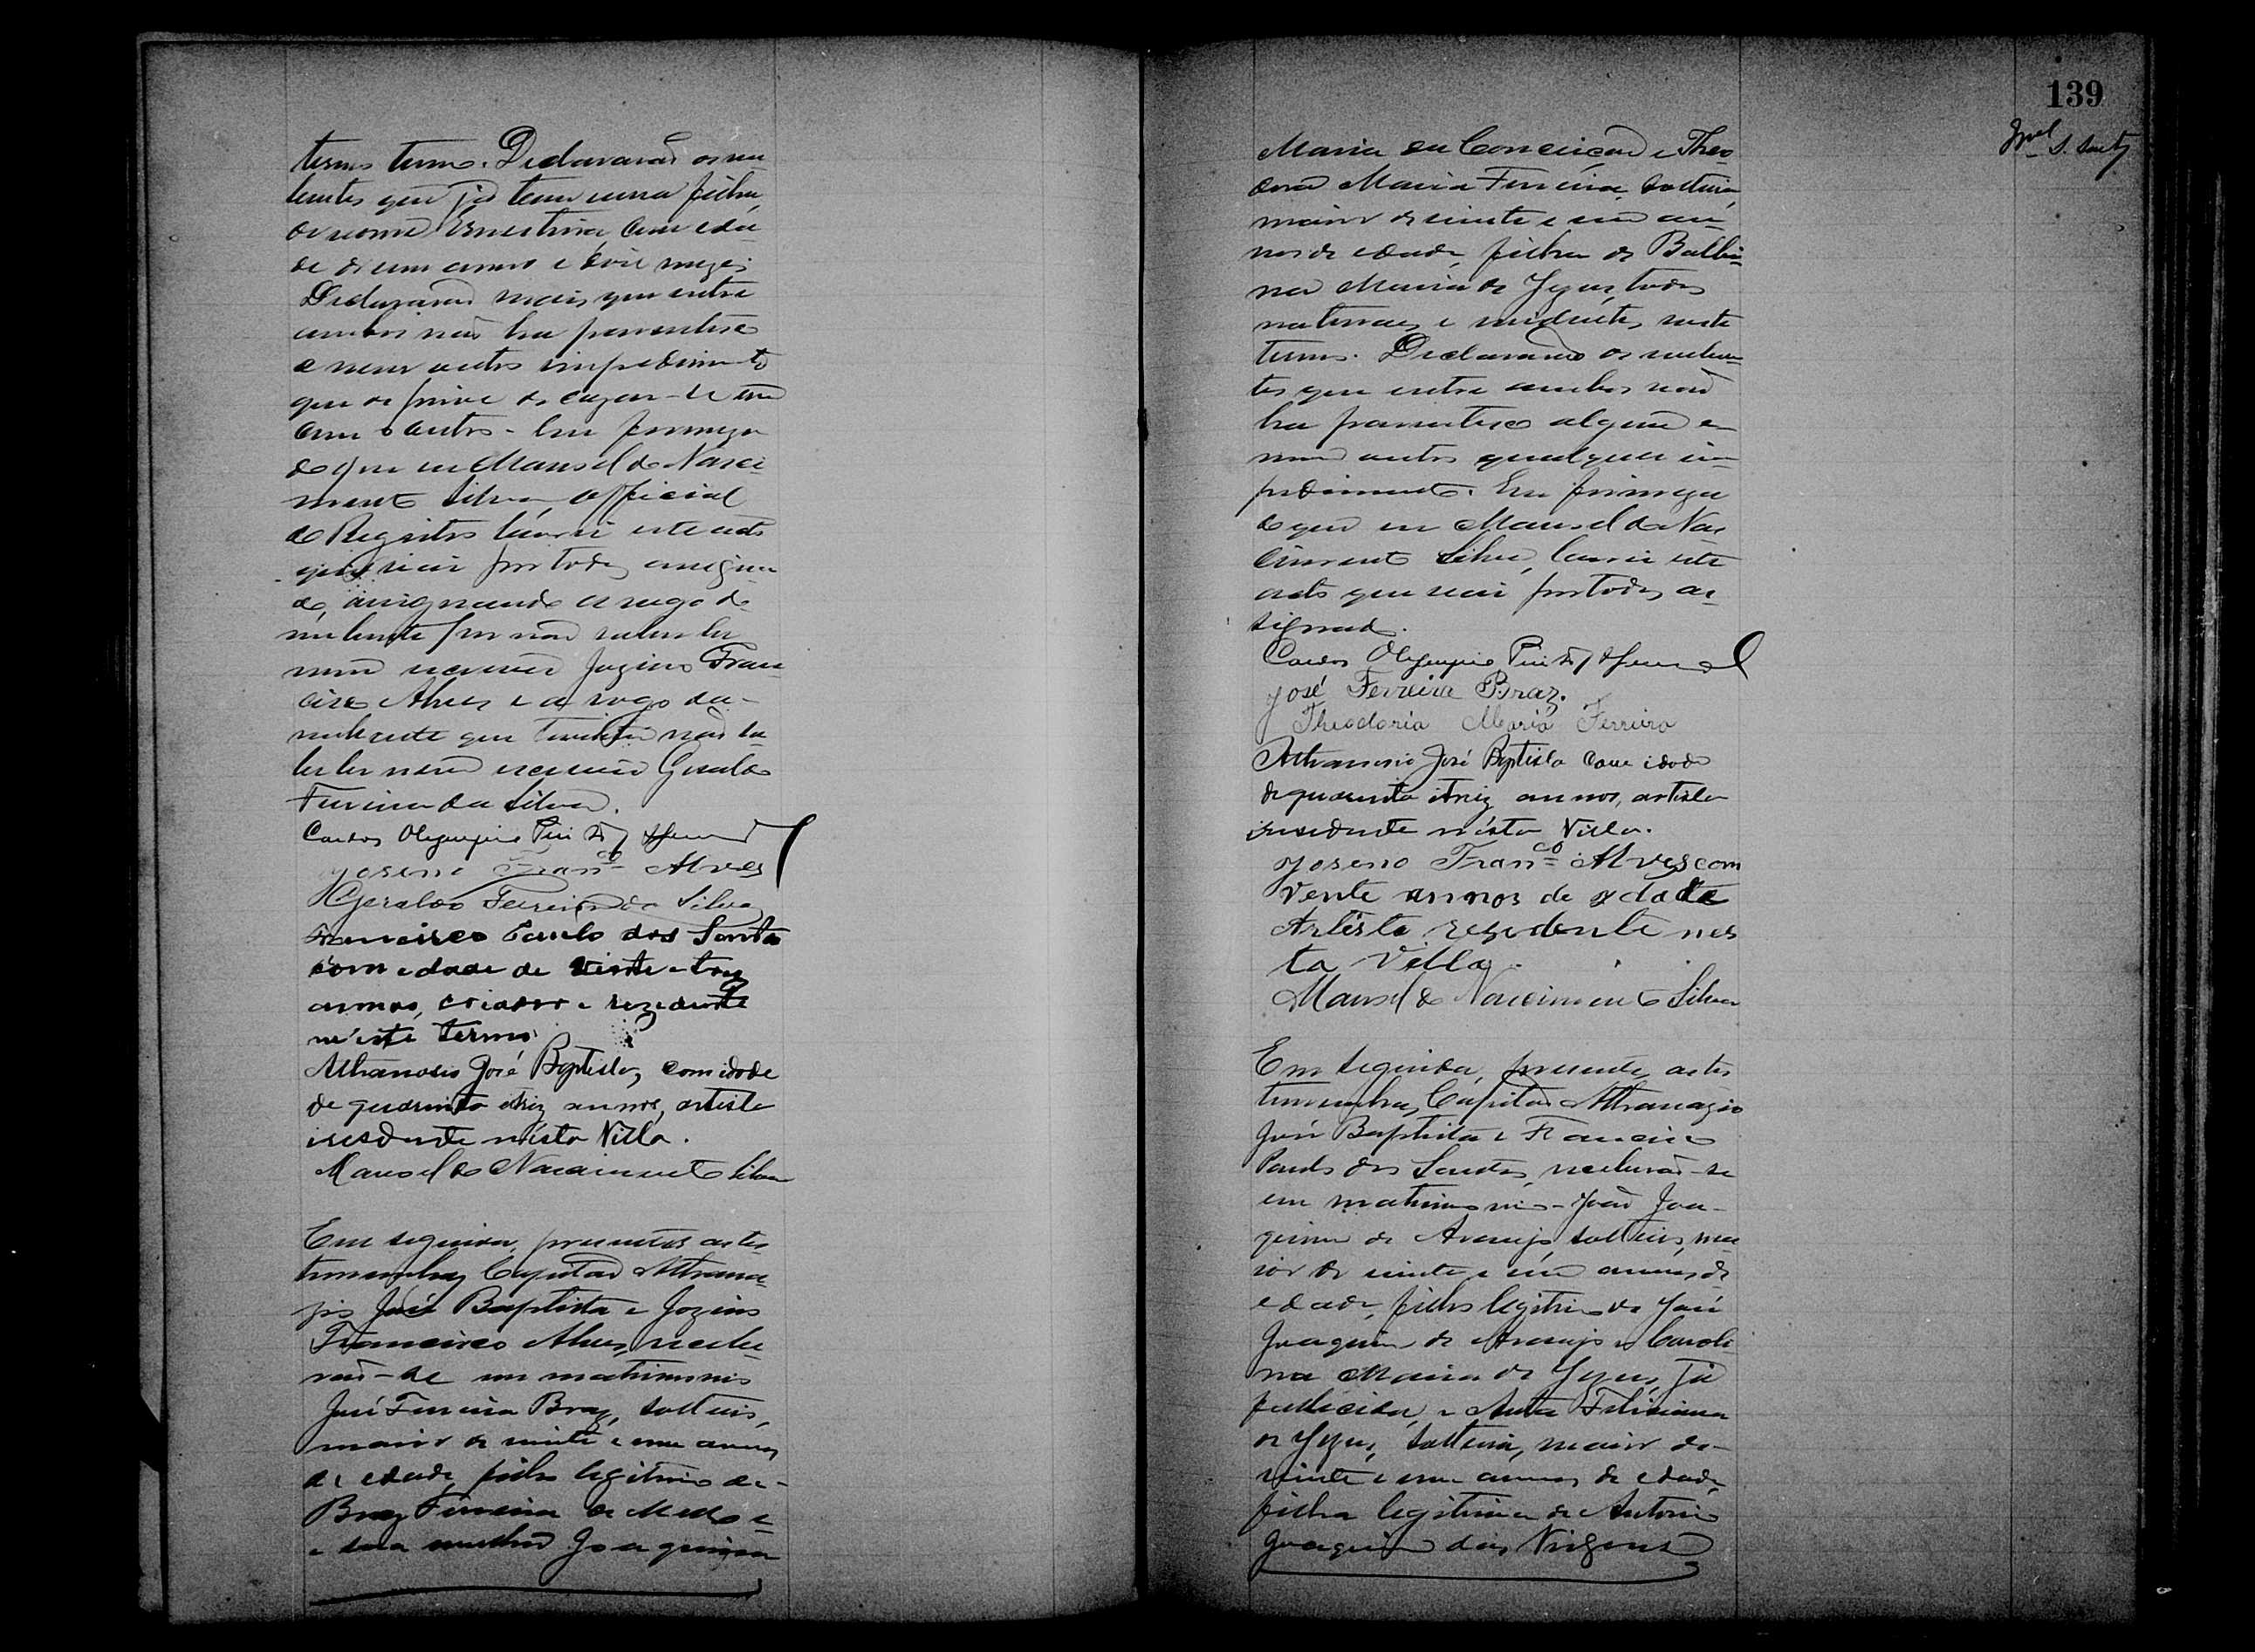 termo. Declararão os nu
bentes que já tem uma filha
de nome Ernestina com eda
de de um anno e dois mezes
Declararão mais que entre
ambos não ha parentesco
e nem outro impedimento
que os prive de cazar-se um
com o outro. Em firmeza
do que eu Manoel do Nasci
mento Silva, Official
do Registro lavrei este acto
que vai por todos assigna
do, assignando a rogo do
nubente por não saber ler
nem escrever Jozino Fran
cisco Alves e a rogo da
nubente que tambem não sa
ber ler nem escrever Geraldo
Ferreira da Silva.
Carlos Olympio
Joseno Fran.co Alves
Geraldo Ferreira da Silva
Francisco Paulo dos Santos
com edade de vinte e trez
annos, criador e rezidente
n'este termo
Athanasio José Baptista, com idade
de quarenta e trez annos, artista
residente n'esta Villa.
Manoel do Nascimento Silva
Em seguida, presentes as tes
temunhas Capitão Athana
zio José Baptista e Jozino
Francisco Alves, recebe
rão-se em matrimonio
José Ferreira Braz, solteiro,
maior de vinte e um annos
de edade, filho legitimo de
Braz Ferreira de Mello e
e sua mulher Joaquina
139
Maria da Conceição e Theo
dora Maria Ferreira, solteira,
maior de vinte e um an
nos de edade, filha de Balbi
na Maria de Jezus, todos
naturaes e residentes neste
termo. Declararão os nuben
tes que entre ambos não
ha parentesco algum e
nem outro qualquer im
pedimento. Em firmeza
do que eu Manoel do Nas
cimento Silva, lavrei este
acto que vai por todos as
signado.
Carlos Olympio
José Ferreira Braz.
Theodoria Maria Ferreira
Athanasio José Baptista com idade
de quarenta e trez annos, artista
residente n'esta Villa.
Joseno Fran.co Alves com
vente annos de edade
Artista resedente nes
ta Villa.
Manoel do Nascimento Silva
Em seguida, presentes as tes
temunhas, Capitão Athanazio
José Baptista e Francisco
Paulo dos Santos, receberão-se
em matrimonio - João Joa-
quim de Araujo, solteiro, ma
ior de vinte e um annos de
edade, filho legitimo de José
Joaquim de Araujo e Caroli
na Maria de Jezus, já
fallecida, e Anta Feliciana
de Jezus, solteira, maior de
vinte e um annos de edade,
filha legitima de Antonio
Joaquim das Virgens